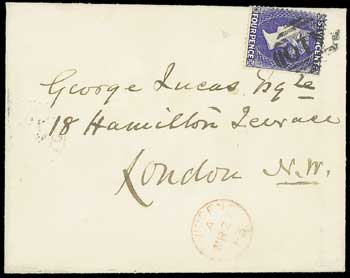 FOUR PENCE
ST VINCENT
George Lucas Esqre
18 Hamilton Terrace
London N.W.